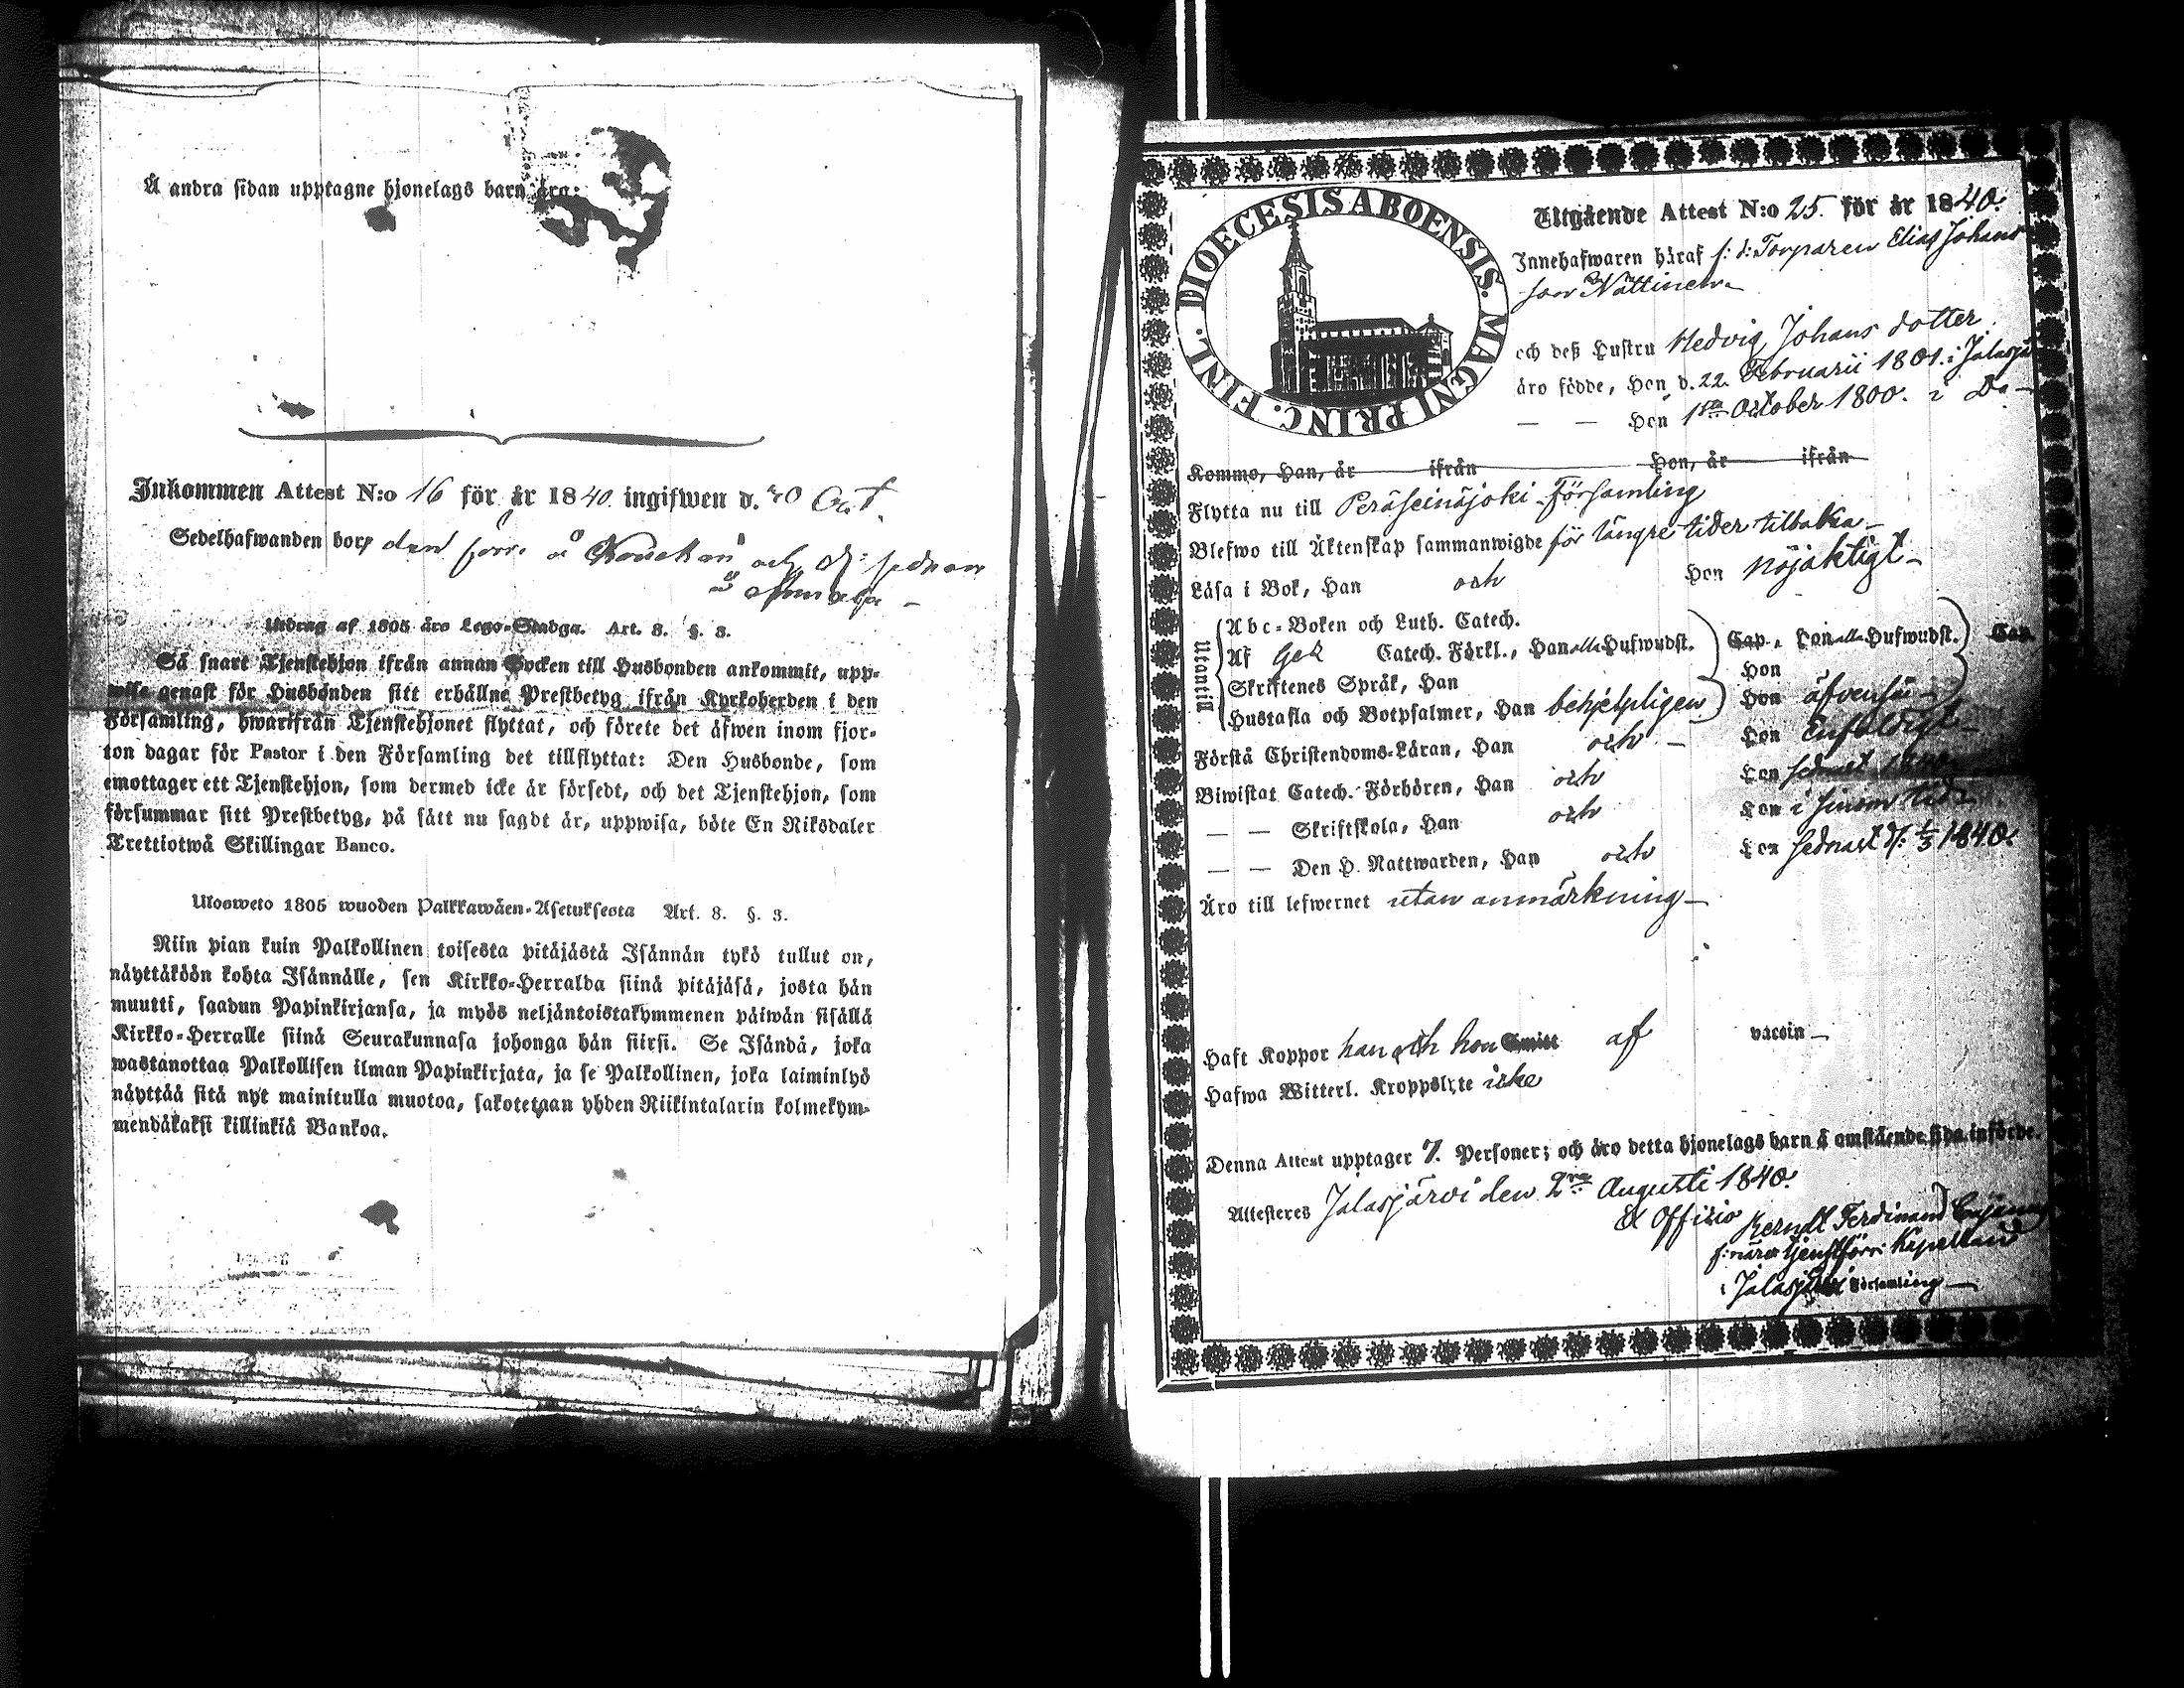 Å andra sidan upptagne hjonelags barn äro:
Inkommen Attest N:o 16 för år 1840. ingifwen d. 20 Oct.
Sedelhafwanden bor den förr. å och sednare
å
Utdrag af 1805 års Lego-Stadga. Art. 8. §. 3.
Så snart Tjenstehjon ifrån annan Socken till Husbonden ankommit, upp-
wise genast för Husbonden sitt erhållne Prestbetyg ifrån Kyrkoherden i den
Församling, hwarifrån Tjenstehjonet flyttat, och förete det äfwen inom fjor-
ton dagar för Pastor i den Församling det tillflyttat: Den Husbonde, som
emottager ett Tjenstehjon, som dermed icke är försedt, och det Tjenstehjon, som
försummar sitt Prestbetyg, på sätt nu sagdt är, uppwisa, böte En Riksdaler
Trettiotwå Skillingar Banco.
Ulosweto 1805 wuoden Palkkawäen-Asetuksesta Art. 8. §. 3.
Niin pian kuin Palkollinen toisesta pitäjästä Isännän tykö tullut on,
näyttäköön kohta Isännälle, sen Kirkko-Herralda siinä pitäjäsä, josta hän
muutti, saadun Papinkirjansa, ja myös neljäntoistakymmenen päiwän sisällä
Kirkko-Herralle siinä Seurakunnasa johonga hän siirsi. Se Isändä, joka
wastanottaa Palkollisen ilman Papinkirjata, ja se Palkollinen, joka laiminlyö
näyttää sitä nyt mainitulla muotoa, sakotetaan yhden Riikintalarin kolmekym-
mendäkaksi killinkiä Bankoa.
DIOECESIS ABOENSIS. MAGNI PRINC. FINL.
Utgående Attest N:o 25. för år 1840.
Innehafwaren häraf f: d: Torparen Elias Johans
son Nättinen
och deß Hustru Hedvig Johans dotter
äro födde, Han d. 22. Februarii 1801. i Jalasjä
— — Hon 1sta October 1800. i Do —
Kommo, Han, år ifrån Hon, år ifrån
Flytta nu till Peräseinäjoki Församling
Blefwo till Äktenskap sammanwigde för längre tider tilbaka —
Läsa i Bok, Han och Hon nöjaktigt —
Utantill
Abc-Boken och Luth. Catech.
Af Catech. Förkl., Han alla Hufwudst. Cap., Hon alla Hufwudst. Cap.
Skriftenes Språk, Han Hon
Hustafla och Botpsalmer, Han behjelpligen Hon äfvenså —
Förstå Christendoms-Läran, Han och — Hon Enfaldigt —
Biwistat Catech. Förhören, Han och Hon sednast 1840.
— — Skriftskola, Han och Hon i sinom tid
— — Den H. Nattwarden, Han och Hon sednast d: 1/3 1840.
Äro till lefwernet utan anmärkning —
Haft Koppor han och hon Smitt af vaccin —
Hafwa Witterl. Kroppslyte icke
Denna Attest upptager 7. Personer; och äro detta hjonelags barn å omstående sida införde.
Attesteres Jalasjärvi den 2ra Augusti 1840.
Ex Officio Berndt Ferdinand
f: närv: tjenstförr: Kapellan
i Jalasjärvi Församling —